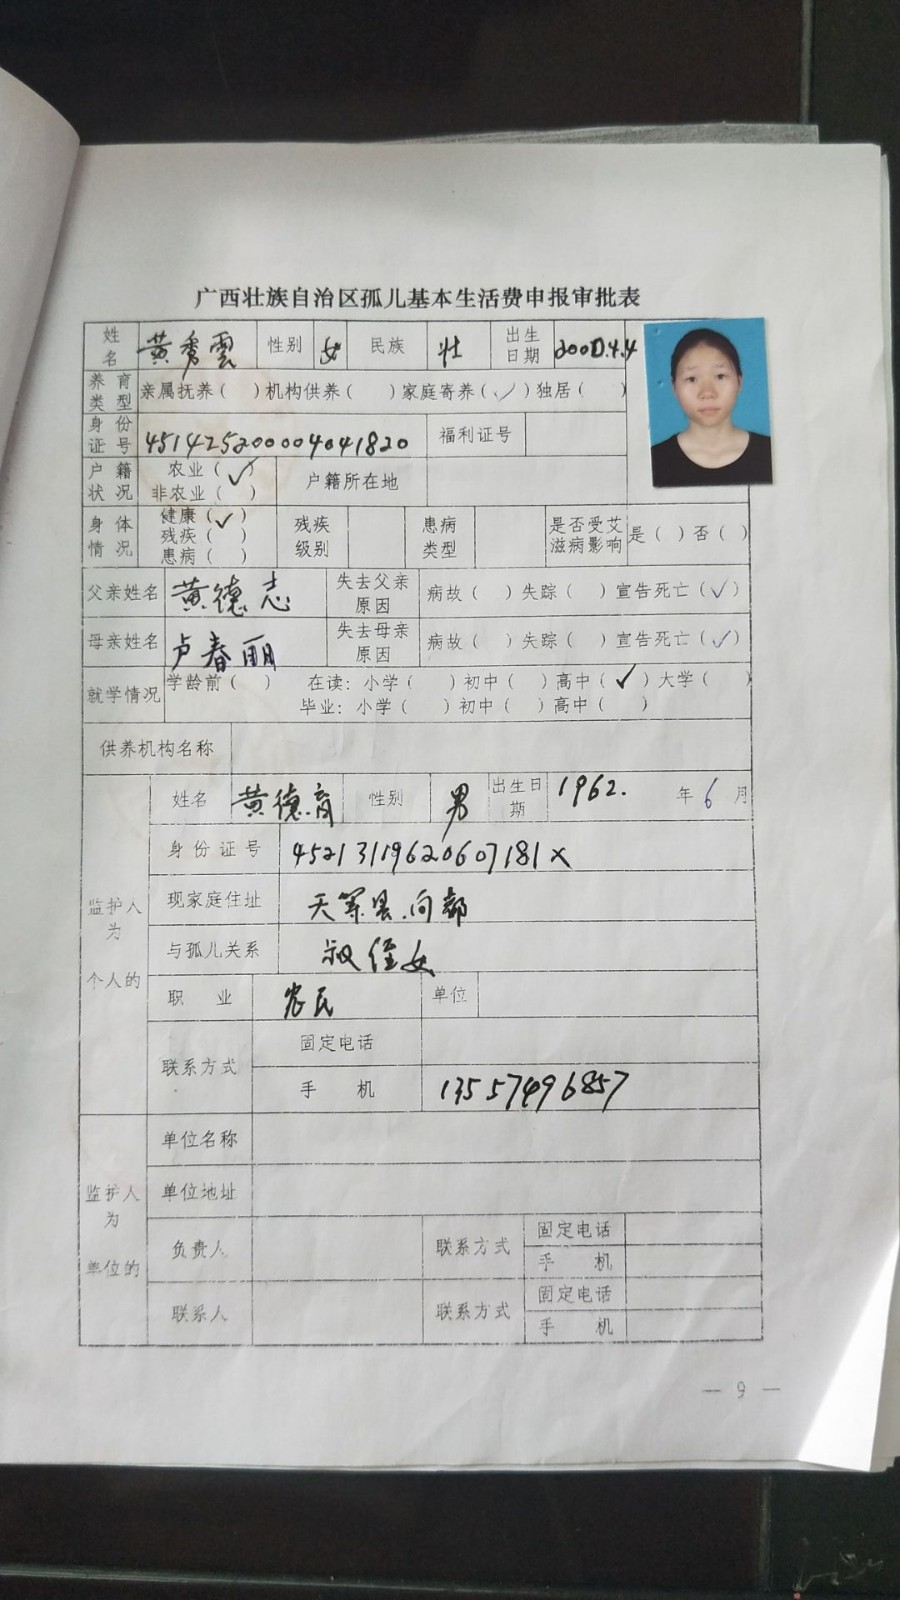 广西壮族自治区孤儿基本生活费申报审批表
姓名 黄秀雲 性别 女 民族 壮 出生日期 2000.4.4
养育类型 亲属抚养( )机构供养( )家庭寄养(✓)独居( )
身份证号 451425200004041820 福利证号
户籍状况 农业(✓) 户籍所在地
非农业( )
身体情况 健康(✓) 残疾级别 患病类型 是否受艾滋病影响 是( )否( )
残疾( )
患病( )
父亲姓名 黄德志 失去父亲原因 病故( )失踪( )宣告死亡(✓)
母亲姓名 卢春丽 失去母亲原因 病故( )失踪( )宣告死亡(✓)
就学情况 学龄前( ) 在读：小学( )初中( )高中(✓)大学( )
毕业：小学( )初中( )高中( )
供养机构名称
监护人为个人的
姓名 黄德育 性别 男 出生日期 1962. 年 6 月
身份证号 45213119620607181X
现家庭住址 天等县.向都
与孤儿关系 叔侄女
职业 农民 单位
联系方式 固定电话
手机 13557496857
监护人为单位的
单位名称
单位地址
负责人 联系方式 固定电话
手机
联系人 联系方式 固定电话
手机
— 9 —